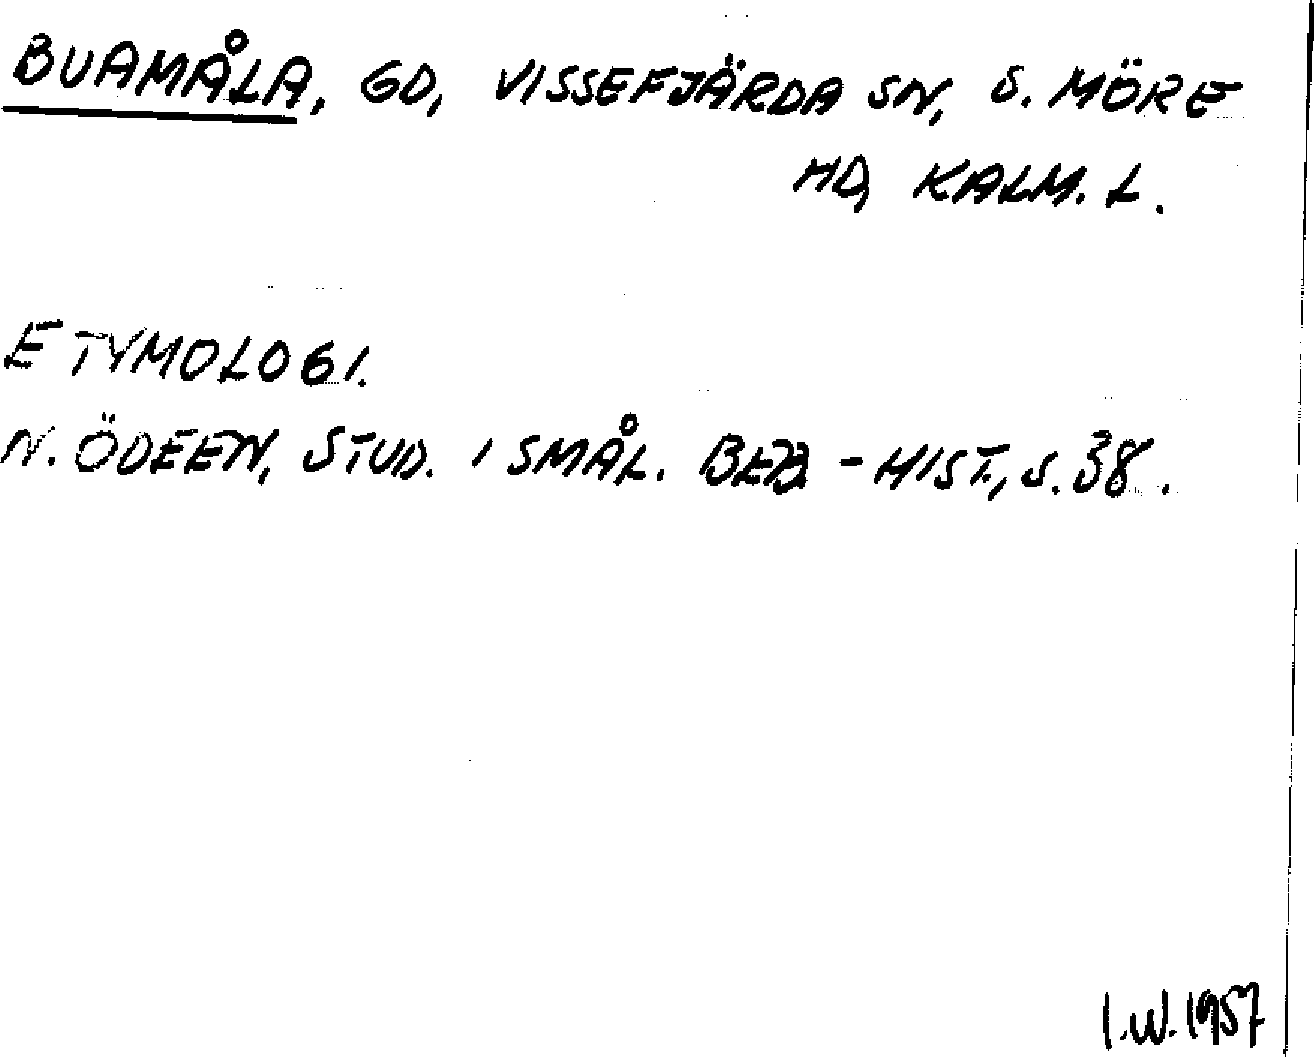 BUAMÅLA, GD, VISSEFJÄRDA SN, S. MÖRE
HD, KALM. L.
ETYMOLOGI.
N. ÖDEEN, STUD. I SMÅL. BEB.-HIST., S. 38.
I.W. 1957